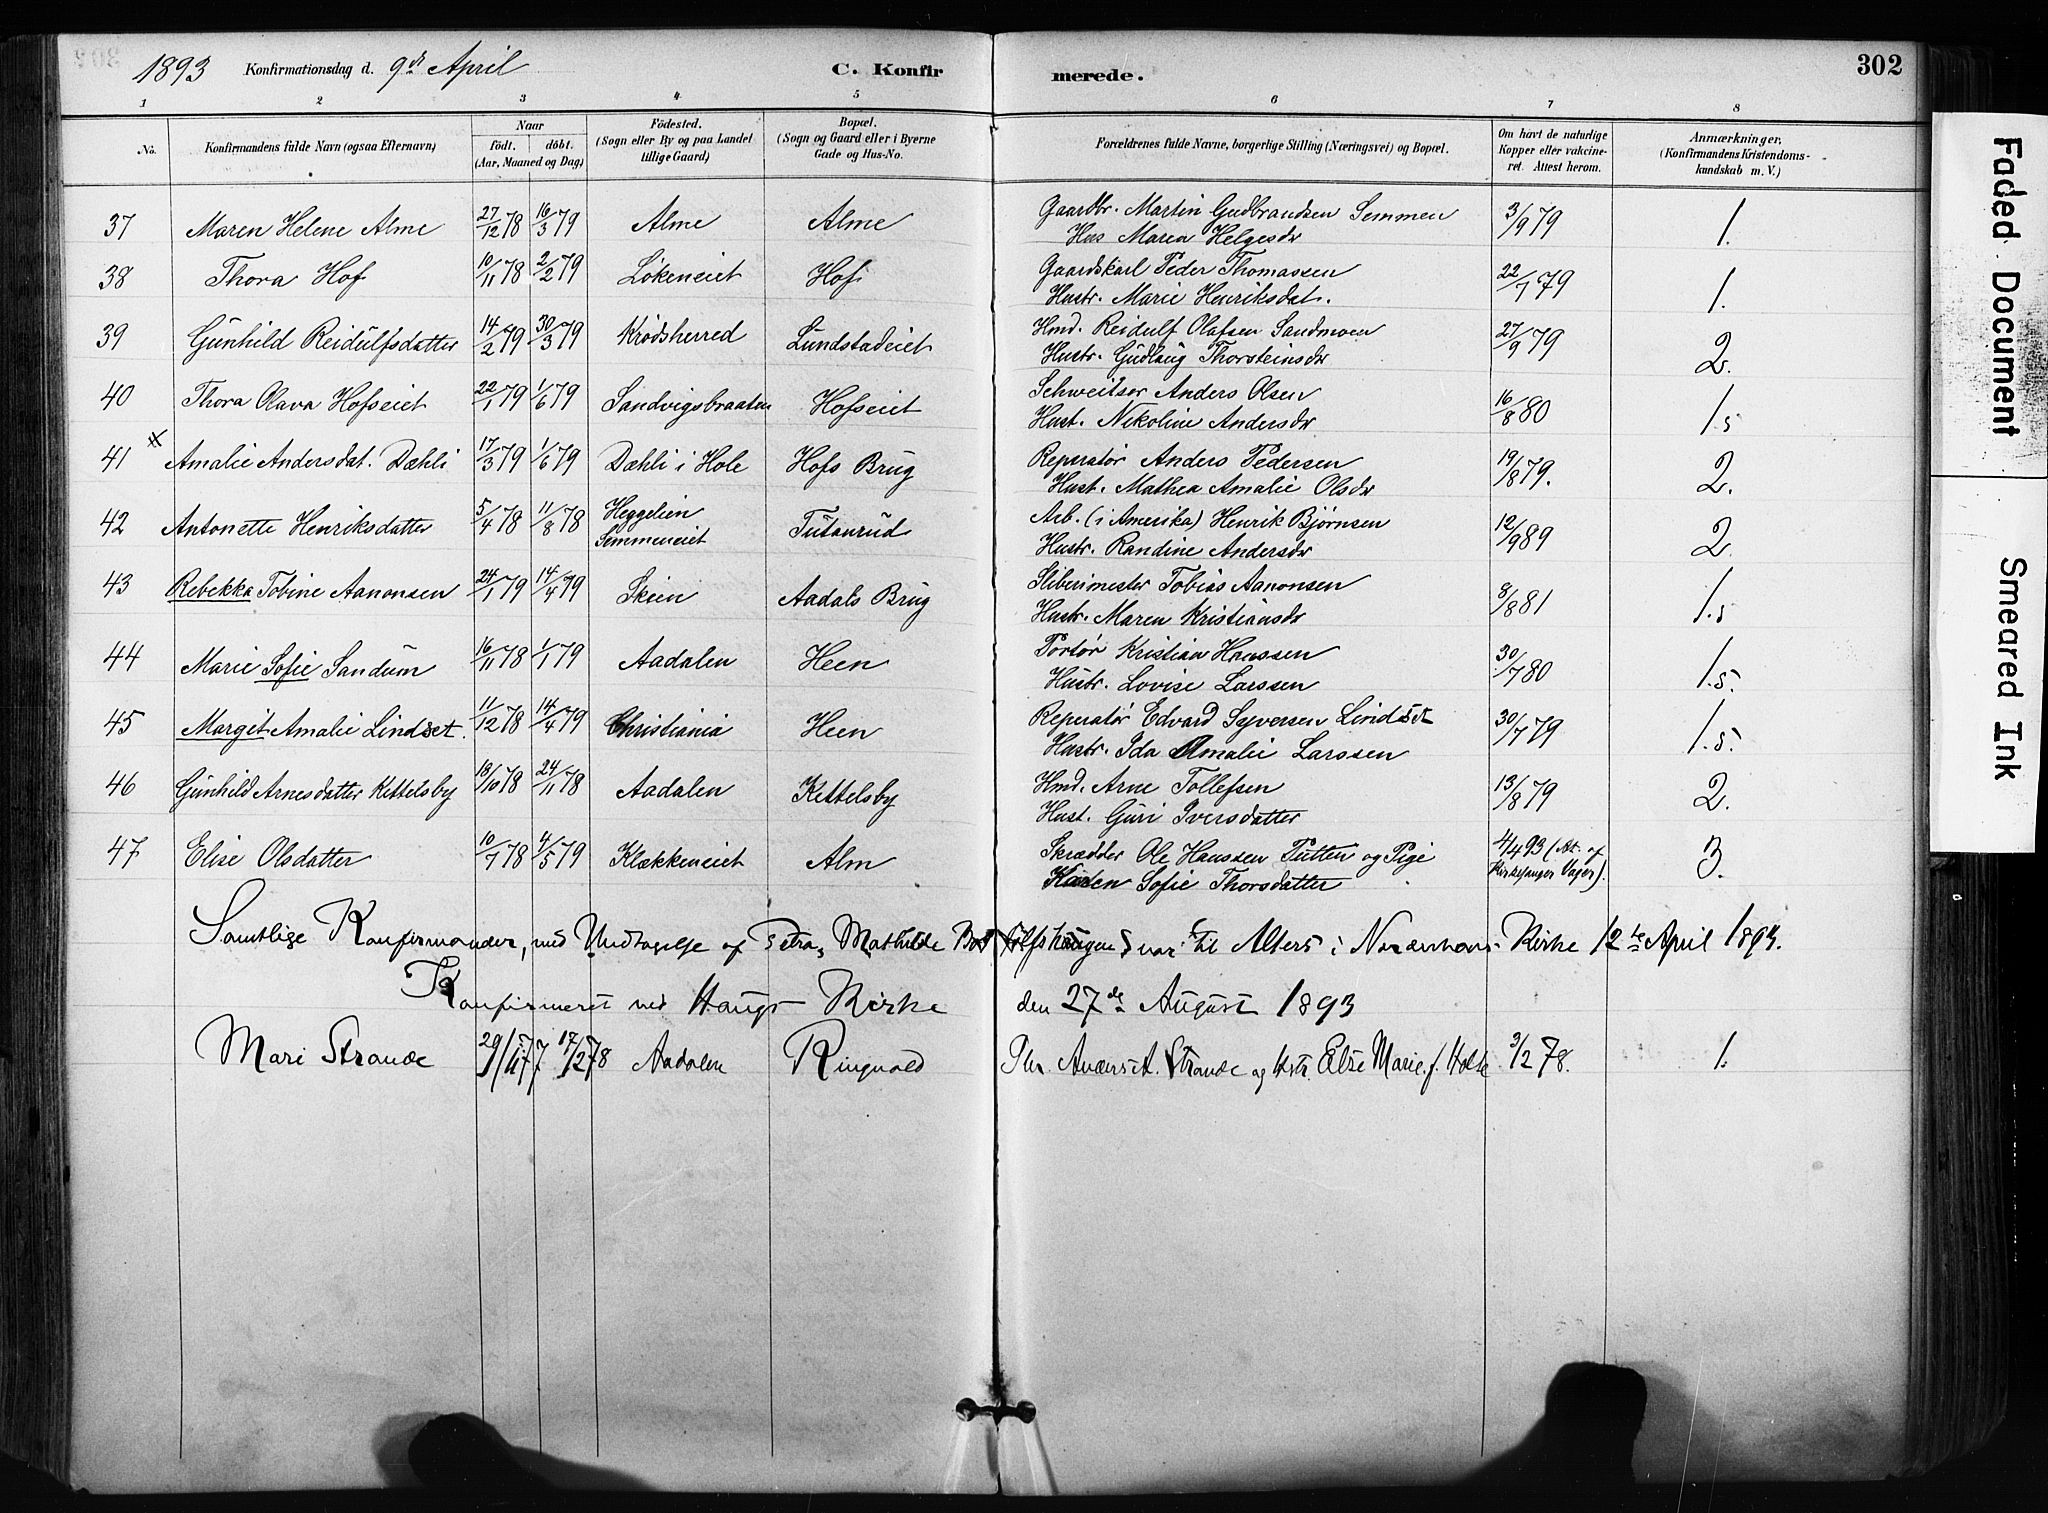 302
1893 Konfirmationsdag d. 9de April C. Konfir merede.
1 2 3 4 5 6 7 8
No. Konfirmandens fulde Navn (ogsaa Efternavn) Naar Födt. döbt. (Aar, Maaned og Dag) Födested. (Sogn eller By og paa Landet tillige Gaard) Bopæl. (Sogn og Gaard eller i Byerne Gade og Hus-No. Forældrenes fulde Navne, borgerlige Stilling (Næringsvei) og Bopæl. Om havt de naturlige Kopper eller vakcineret. Attest herom. Anmærkninger, (Konfirmandens Kristendomskundskab m. V.)
37 Maren Helene Alme 27/12 78 16/3 79 Alme Alme Gaardbr. Martin Gudbrandsen Semmen 3/9 79 1.
Hus Maren Helgesdr
38 Thora Hof 10/11 78 2/2 79 Løkeneiet Hof Gaardskarl Peder Thomassen 22/1 79 1.
Hustr. Marie Henriksdat.
39 Gunhild Reidulfsdatter 14/2 79 30/3 79 Krødsherred Lundstadeiet Hmd. Reidulf Olafsen Sandmoen 27/9 79 2.
Hustr. Gudlaug Thorsteinsdr
40 Thora Olava Hofseiet 22/1 79 1/6 79 Sandvigsbraaten Hofseiet Schweitser Anders Olsen 16/8 80 1.5
Hust. Nikoline Andersdr
41 Amalie Andersdat. Dæhli 17/3 79 1/6 79 Dæhli i Hole Hofs Brug Reperatør Anders Pedersen 19/8 79. 2.
Hust. Mathea Amalie Olsdr
42 Antonette Henriksdatter 5/4 78 11/8 78 Heggelien Semmeneiet Tutanrud Arb. (i Amerika) Henrik Bjørnsen 12/9 89 2.
Hustr. Randine Andersdr
43 Rebekka Tobine Aanonsen 24/1 79 14/4 79 Skien Aadals Brug Sliberimester Tobias Aanonsen 8/8 81 1.5
Hustr. Maren Kristiansdr
44 Marie Sofie Sandum 16/11 78 1/1 79 Aadalen Heen Portør Kristian Hanssen 30/7 80 1.5.
Hustr. Lovise Larssen
45 Margit Amalie Lindset. 11/12 78 14/4 79 Christiania Heen Reperatør Edvard Syversen Lindset 30/7 79 1.5.
Hustr. Ida Amalie Larssen
46 Gunhild Arnesdatter Kettelsby 18/10 78 24/11 78 Aadalen Kettelsby Hmd. Arne Tollefsen 13/8 79 2.
Hust. Guri Iversdatter
47 Elise Olsdatter 10/7 78 4/5 79 Klækkeneiet Alm Skrædder Ole Hanssen Putten og Pige 4/4 93 (At. af Kirkesanger Vager). 3.
Karen Sofie Thorsdatter
Samtlige Konfirmander, med Undtagelse af Petra Mathilde var til Alters i Norderhovs Kirke 12te April 1893.
Konfirmeret ved Haugs Kirke den 27de August 1893
Mari Strande 29/11 77 17/2 78 Aadalen Ringvold Anders A. Strande og Hstr. Else Marie f. 3/2 78. 1.
Faded Document
Smeared Ink